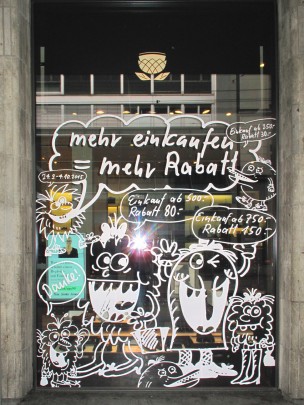 mehr einkaufen
= mehr Rabatt
Einkauf ab 250.-
Rabatt 30.-
Einkauf ab 500.-
Rabatt 80.-
Einkauf ab 750.-
Rabatt 150.-
Danke!